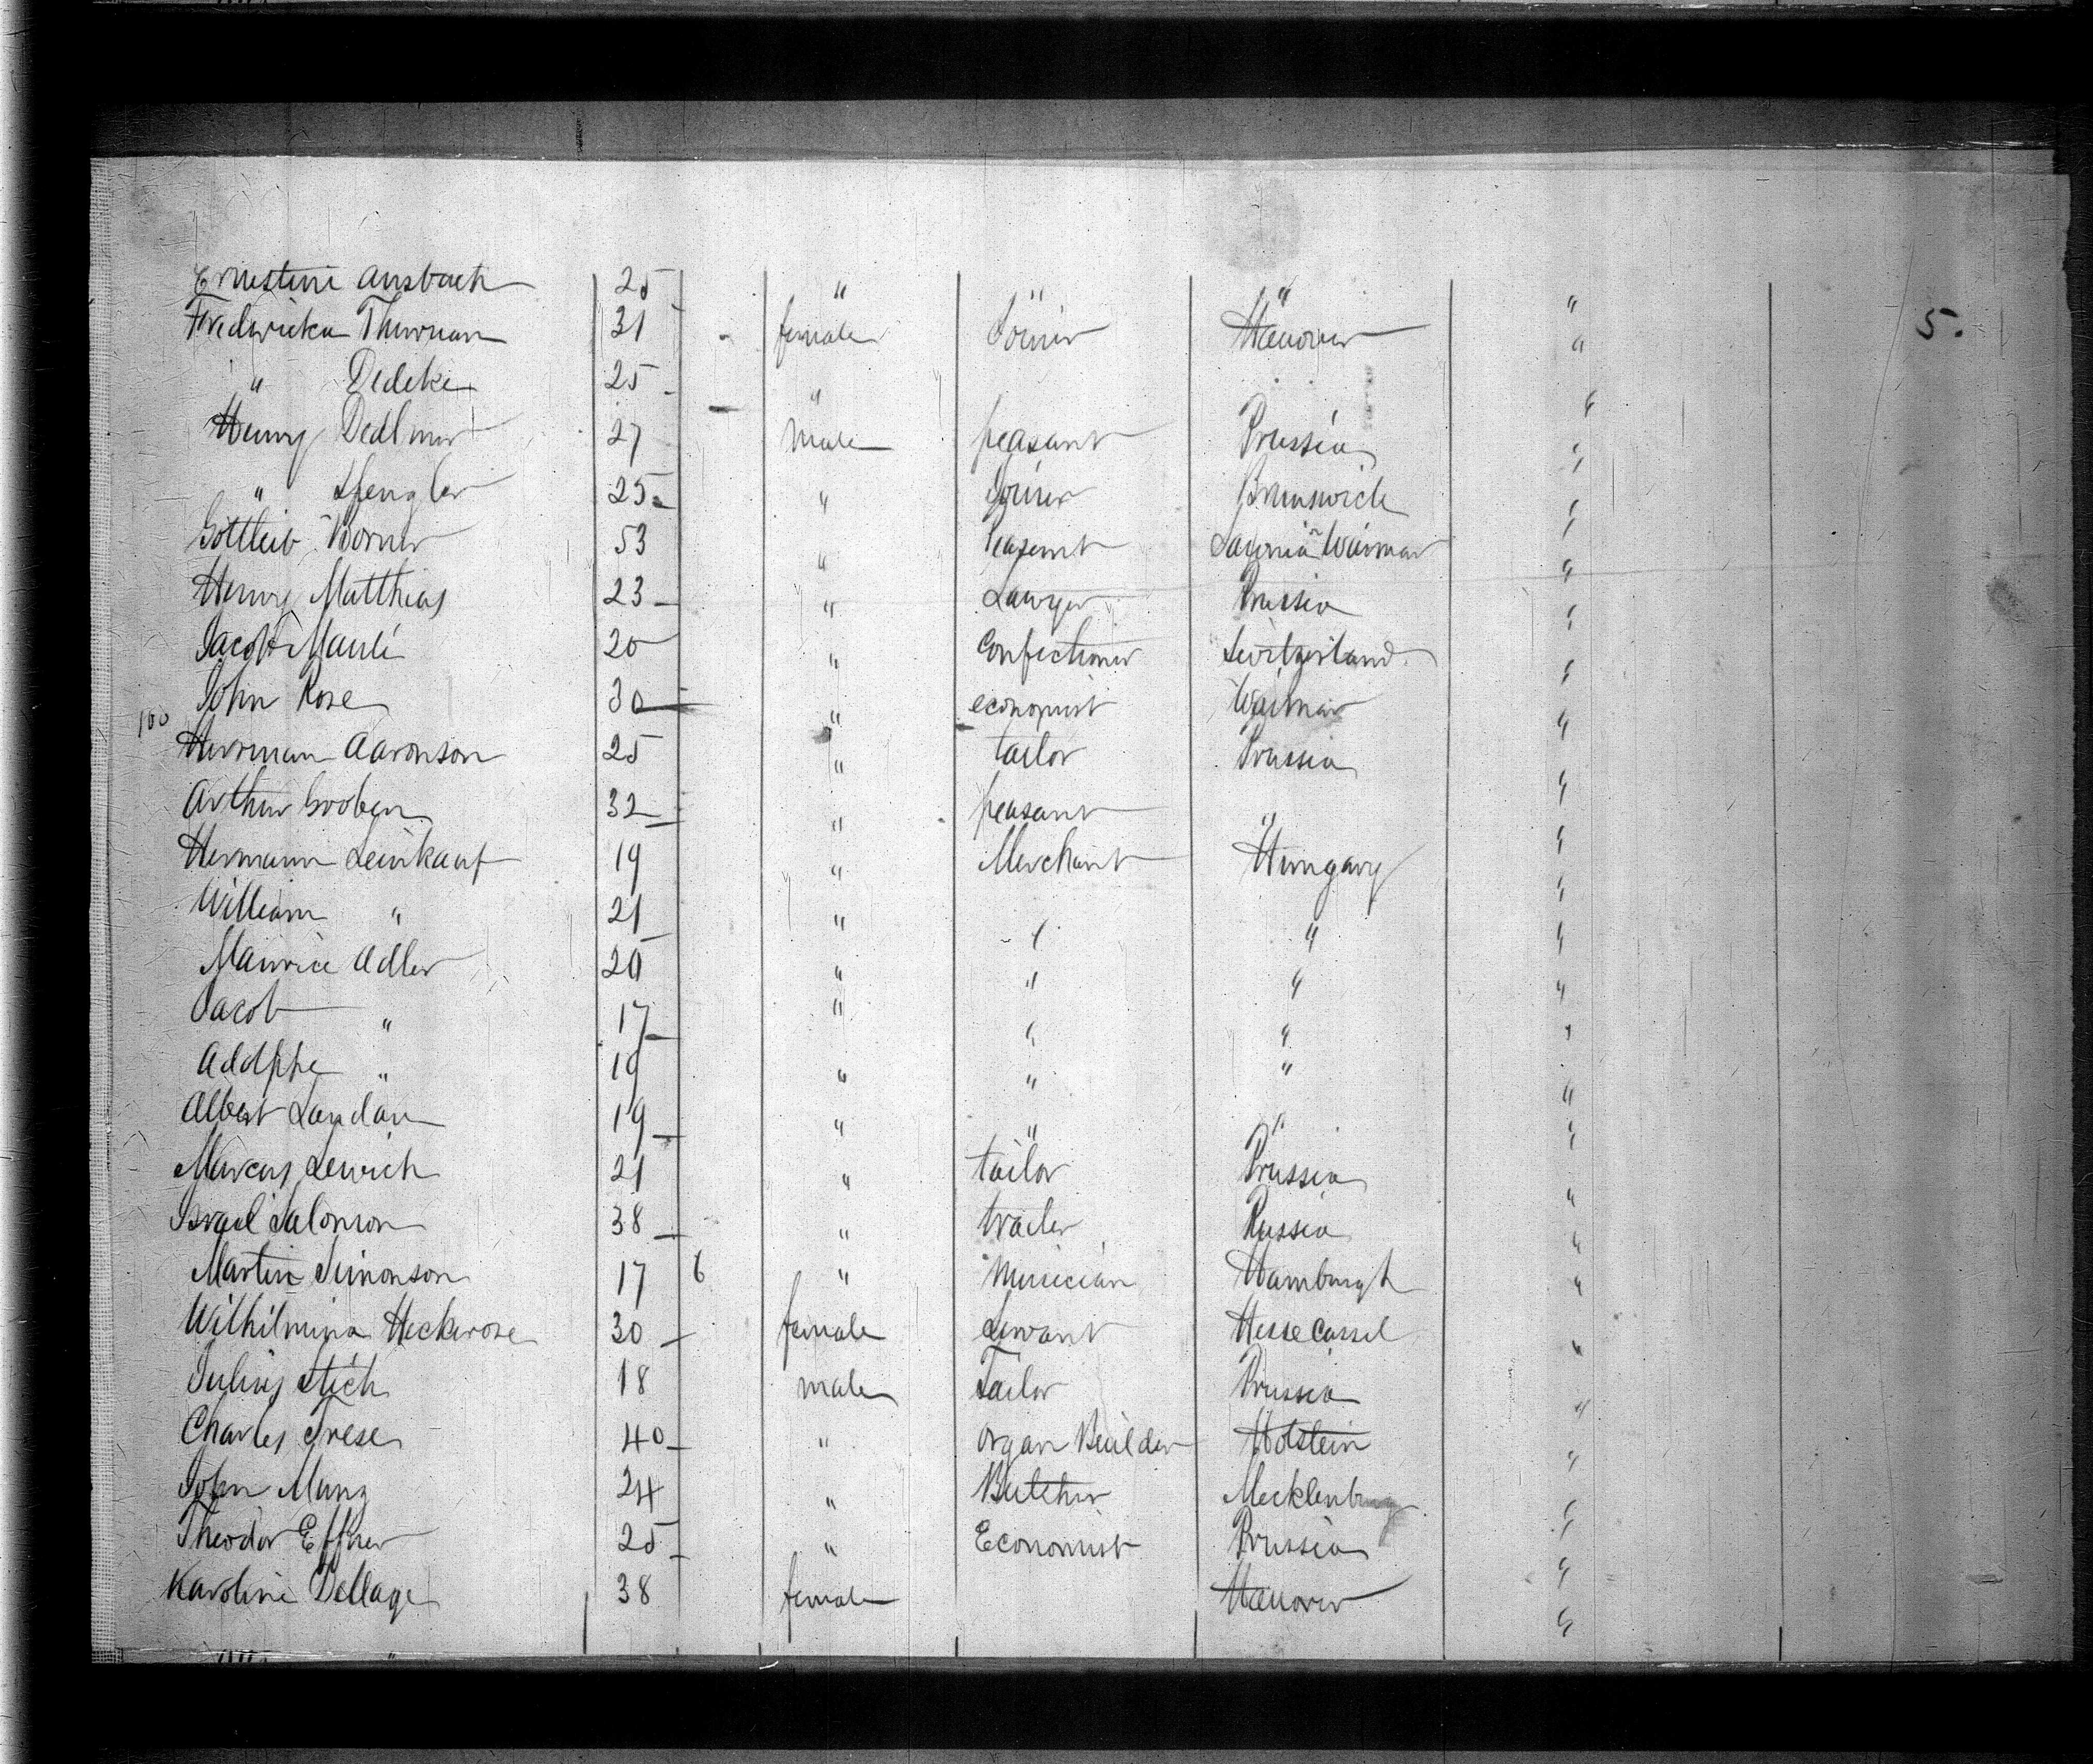 Ernestine Ansbach 25 " " " "
Fredericka Thurman 31 female Joiner Hanover " 5.
" Dedeke 25 " "
Henry Dedlmer 27 male peasant Prussia "
" Spengler 25 " Joiner Brunswick "
Gottlieb Borner 53 " Peasent Saxonia Waimar "
Henry Matthias 23 " Lawyer Prussia "
Jacob Mauli 20 " Confectioner Switzerland "
John Rose 30 " economist Waimar "
100 Herrman Aaronson 25 " tailor Prussia "
Arthur Groben 32 " peasant " "
Hermann Leinkauf 19 " Merchant Hungary "
William " 21 " " " "
Maurice Adler 20 " " " "
Jacob " 17 " " " "
Adolphe " 19 " " "
Albert Landau 19 " " " "
Marcus Lewich 21 " tailor Prussia "
Israel Salomon 38 " trader Russia "
Martin Simonson 17 6 " Musician Hamburgh "
Wilhilmina Heckerose 30 female Servant Hesse Cassel "
Julius Stich 18 male Tailor Prussia "
Charles Frese 40 " Organ Builder Holstein "
John Munz 24 " Butcher Mecklenburg "
Theodor Effner 25 " Economist Prussia "
Karoline Dellage 38 female Hanover "